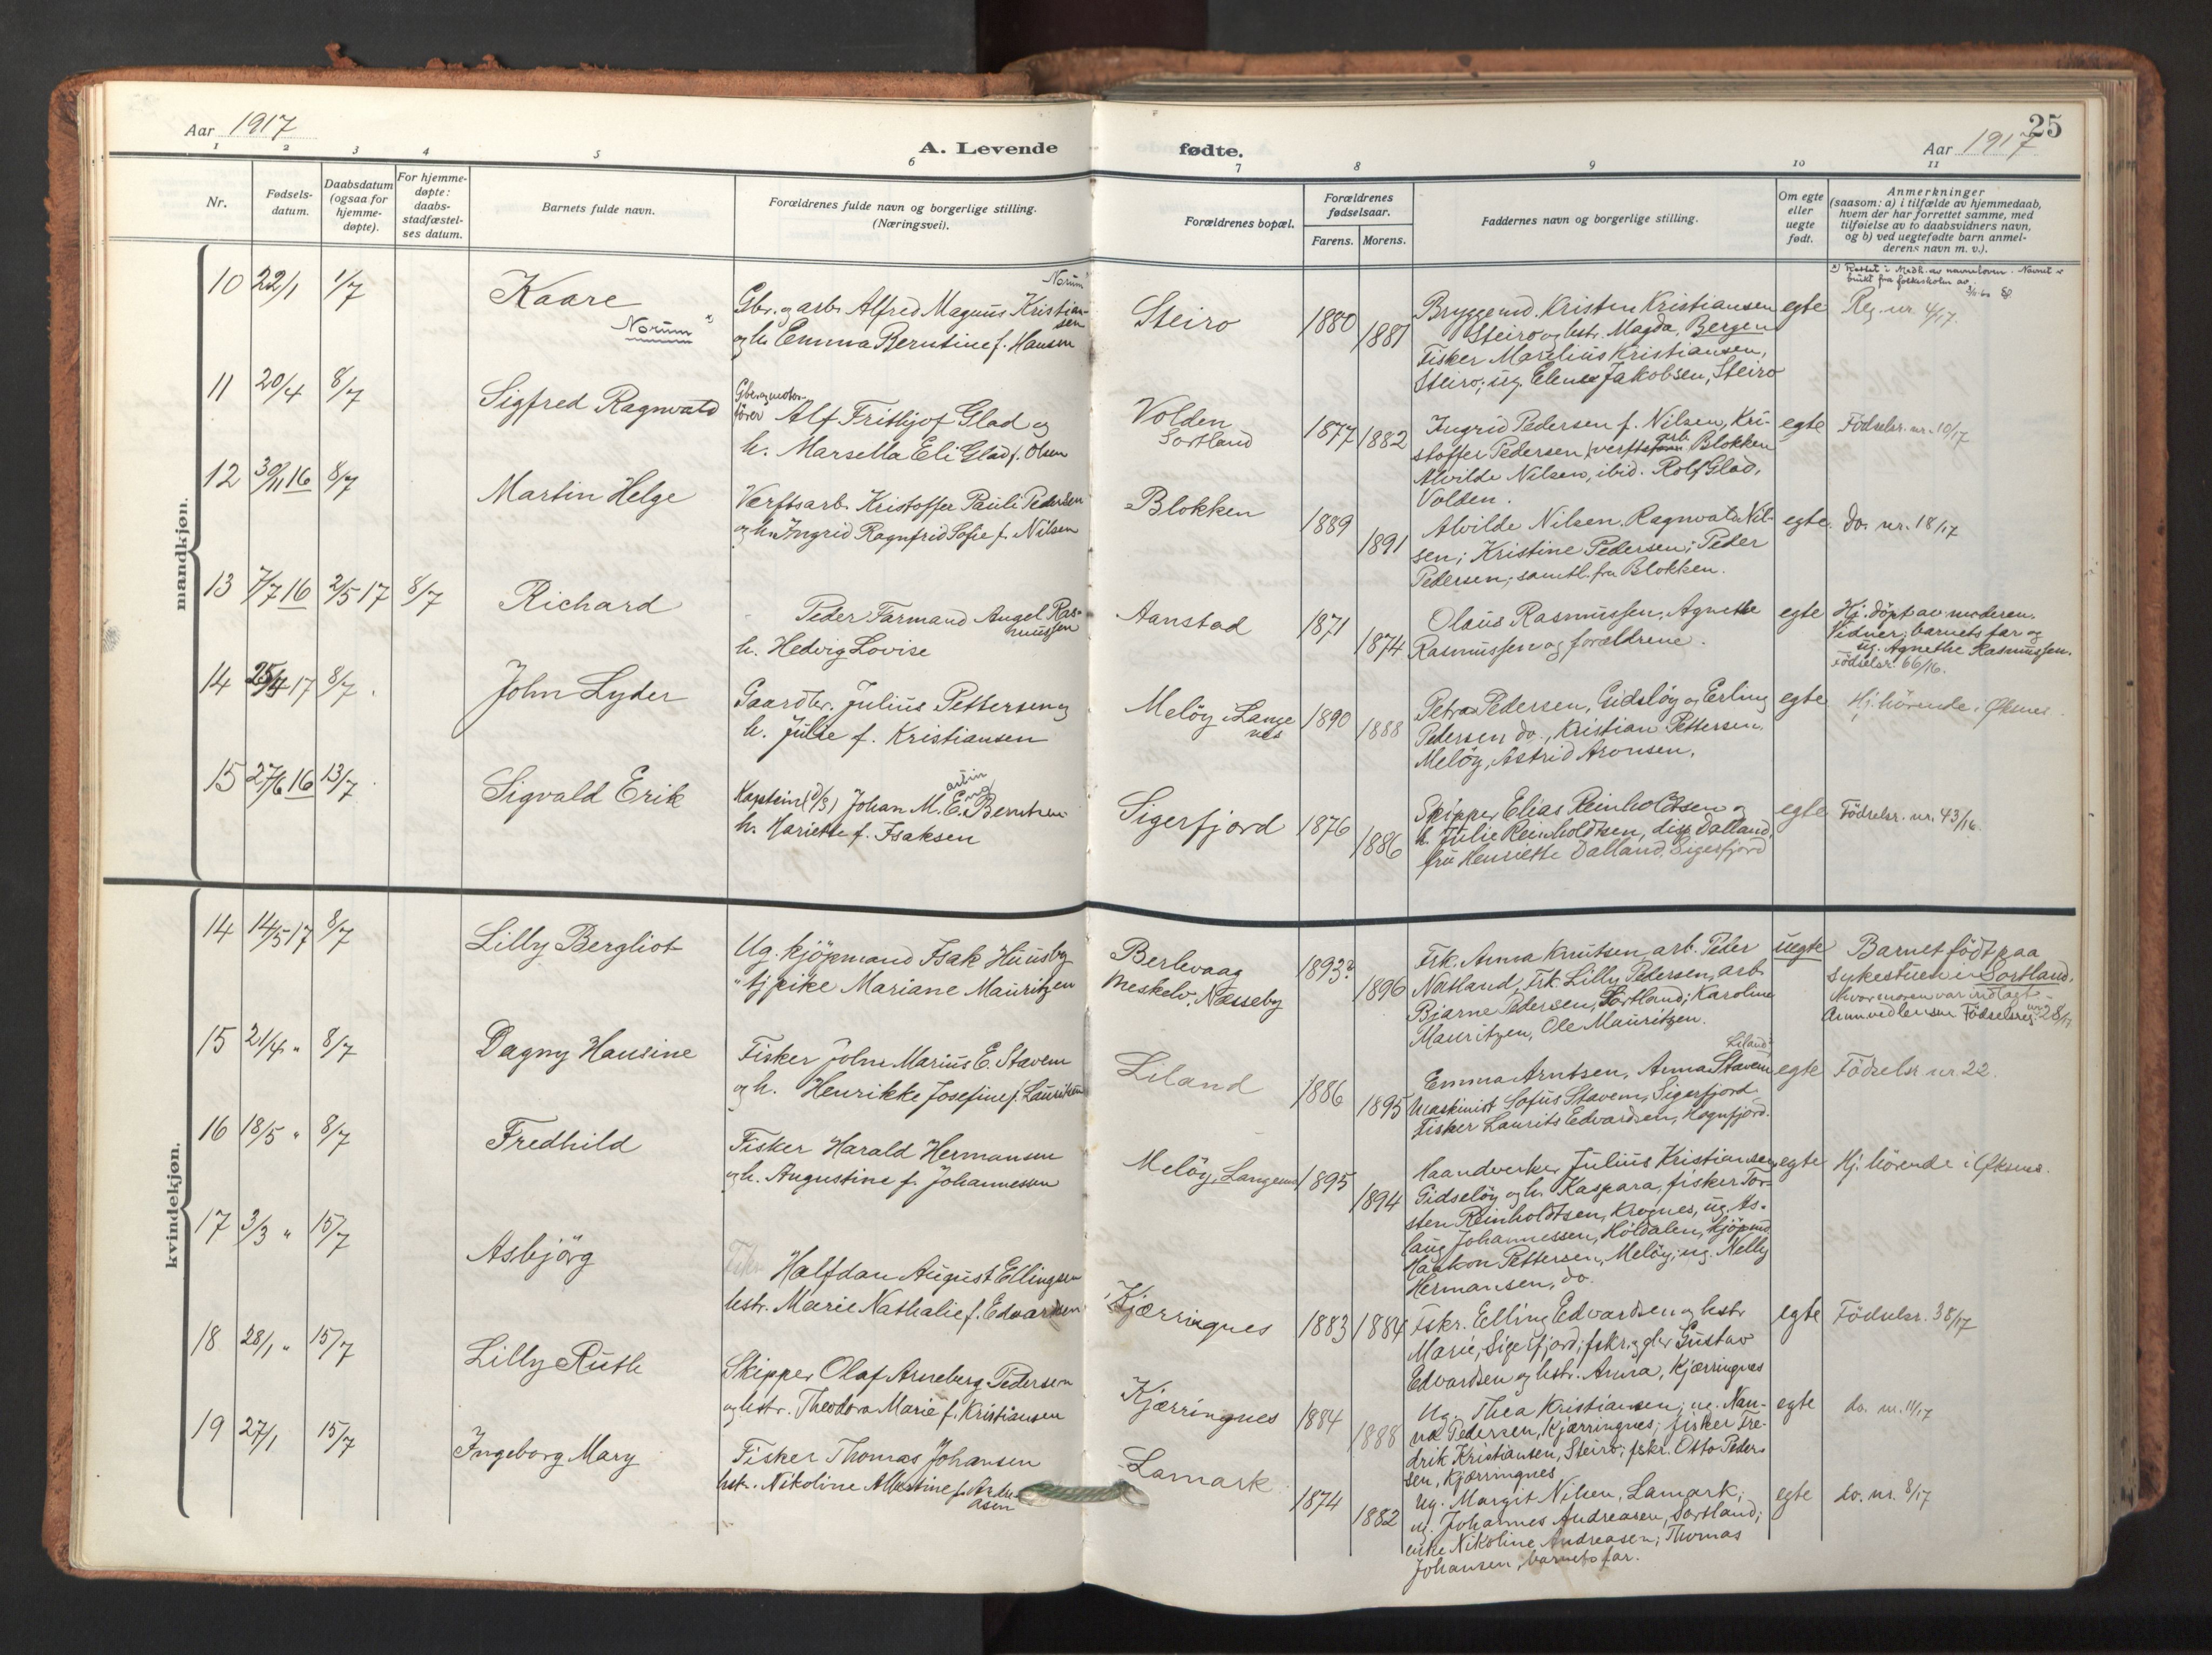 Aar 1917
A. Levende fødte.
Aar 1917
25
1 2 3 4 5 6 7 8 9 10 11
Nr.
Fødsels-
datum.
Daabsdatum
(ogsaa for
hjemme-
døpte).
For hjemme-
døpte:
daabs-
stadfæstel-
ses datum.
Barnets fulde navn.
Forældrenes fulde navn og borgerlige stilling.
(Næringsvei).
Forældrenes bopæl.
Forældrenes
fødselsaar.
Farens. Morens.
Faddernes navn og borgerlige stilling.
Om egte
eller
uegte
født.
Anmerkninger
(saasom: a) i tilfælde av hjemmedaab,
hvem der har forrettet samme, med
tilføielse av to daabsvidners navn,
og b) ved uegtefødte barn anmel-
derens navn m. v.).
mandkjøn.
10 22/1 1/7
Kaare
Norum x)
Norum x)
Gbr. og arb. Alfred Magnus Kristian-
sen
og h. Emma Berntine f. Hansen
Steiro
1880 1881
Bryggemd. Kristen Kristiansen
Steiro og hstr. Magda, Bergen
Fisker Marelius Kristiansen,
Steiro; ug. Elense Jakobsen, Steiro
egte
x) Rettet i Medh. av navneloven. Navnet er
brukt fra folkeskolen av.
Reg. nr. 4/17.
11 20/4 8/7
Sigfred Ragnvald
Gbr. og motor-
fører Alf Frithjof Glad og
h. Marsella Eli Glad f. Olsen
Volden
Sortland
1877 1882
Ingrid Pedersen f. Nilsen, Kri-
stoffer Pedersen, verftsarb. Blokken
Alvilde Nilsen, ibid. Rolf Glad,
Volden.
egte
Födselsr. nr. 10/17
12 30/11 16 8/7
Martin Helge
Verftsarb. Kristoffer Pauli Pedersen
og h. Ingrid Ragnfrid Sofie f. Nilsen
Blokken
1889 1891
Alvilde Nilsen, Ragnvald Nil-
sen; Kristine Pedersen; Peder
Pedersen; samtl. fra Blokken.
egte.
do. nr. 18/17
13 7/7 16 2/5 17 8/7
Richard
Peder Farmand Angel Ras-
mussen
h. Hedvig Lovise
Aanstad
1871 1874
Olaus Rasmussen, Agnethe
Rasmussen og forældrene.
egte
Hj. döpt av moderen.
Vidner: barnets far og
ug. Agnethe Rasmussen.
Födselsr. 66/16.
14 25/4 17 8/7.
John Lyder
Gaardbr. Julius Pettersen og
h. Julie f. Kristiansen
Melöy, Lange
nes
1890 1888
Petra Pedersen, Gidslöy og Erling
Pedersen do., Kristian Pettersen,
Melöy, Astrid Aronsen,
egte
Hj. hörende i Øksnes.
15 27/6 16 13/7
Sigvald Erik
Kaptein (D/S) Johan M. E. Berntsen
h. Hariette f. Isaksen
Sigerfjord
1876 1886
Skipper Elias Reinholdtsen og
h. Julie Reinholdtsen, disp Dalland,
fru Henriette Dalland, Sigerfjord
egte
Födselsr. nr. 43/16.
kvindekjøn.
14 14/5 17 8/7
Lilly Bergliot
Ug. kjöpmand Isak Huusby
" tj. pike Mariane Mauritzen
Berlevaag
Meskelv, Næsseby
1893? 1896
Frk. Anna Knutsen, arb. Peter
Natland, Frk. Lilly Pedersen, arb.
Bjarne Pedersen, Sortland; Karoline
Mauritzen, Ole Mauritzen.
uegte
Barnet födt paa
sykestuen i Sortland,
hvor moren var indlagt
Födselsreg. nr. 28/17
15 21/4 " 8/7
Dagny Hansine
Fisker John Marius E. Stavem
og h. Henrikke Josefine f. Lauritsen
Liland
1886 1895
Liland
Emma Arntsen, Anna Stavem
Maskinist Sofus Stavem, Sigerfjord
Fisker Laurits Edvardsen, Hognfjord.
egte
Födselsr nr. 22.
16 18/5 " 8/7
Fredhild
Fisker Harald Hermansen
og h. Augustine f. Johannessen
Melöy, Langenes
1895 1894
Haandverker Julius Kristiansen,
Gidselöy og h. Kaspara, fisker Tor-
sten Reinholdtsen, Krognes, ug. As-
laug Johannessen, Höldalen, kjöpmd.
Haakon Pettersen, Melöy; ug. Nelly
Hermansen, do.
egte
Hj. hörende i Øksnes.
17 3/3 " 15/7
Asbjörg
Halfdan August Ellingsen
hstr. Marie Nathalie f. Edvardsen
Kjærringnes
1883 1884
Fskr. Elling Edvardsen og hstr
Marie, Sigerfjord; fskr. og gbr Gustav
Edvardsen og hstr. Anna, Kjærringnes
egte
Födselsr. 38/17
18 28/1 " 15/7
Lilly Ruth
Skipper Olaf Arneberg Pedersen
og hstr. Theodora Marie f. Kristiansen
Kjærringnes
1884 1888
Ug. Thea Kristiansen; ug. Nan-
na Pedersen, Kjærringnes; fisker Fre-
drik Kristiansen, Steiro; fskr. Otto Peder-
sen, Kjærringnes
egte
do. nr. 11/17
19 27/1 15/7
Ingeborg Mary
Fisker Thomas Johansen
hstr. Nikoline Albertine f. Andre-
asen
Lamark
1874 1882
Ug. Margit Nilsen, Lamark;
ug. Johannes Andreasen, Sortland;
enke Nikoline Andreasen; Thomas
Johansen, barnets far.
egte
do. nr. 8/17